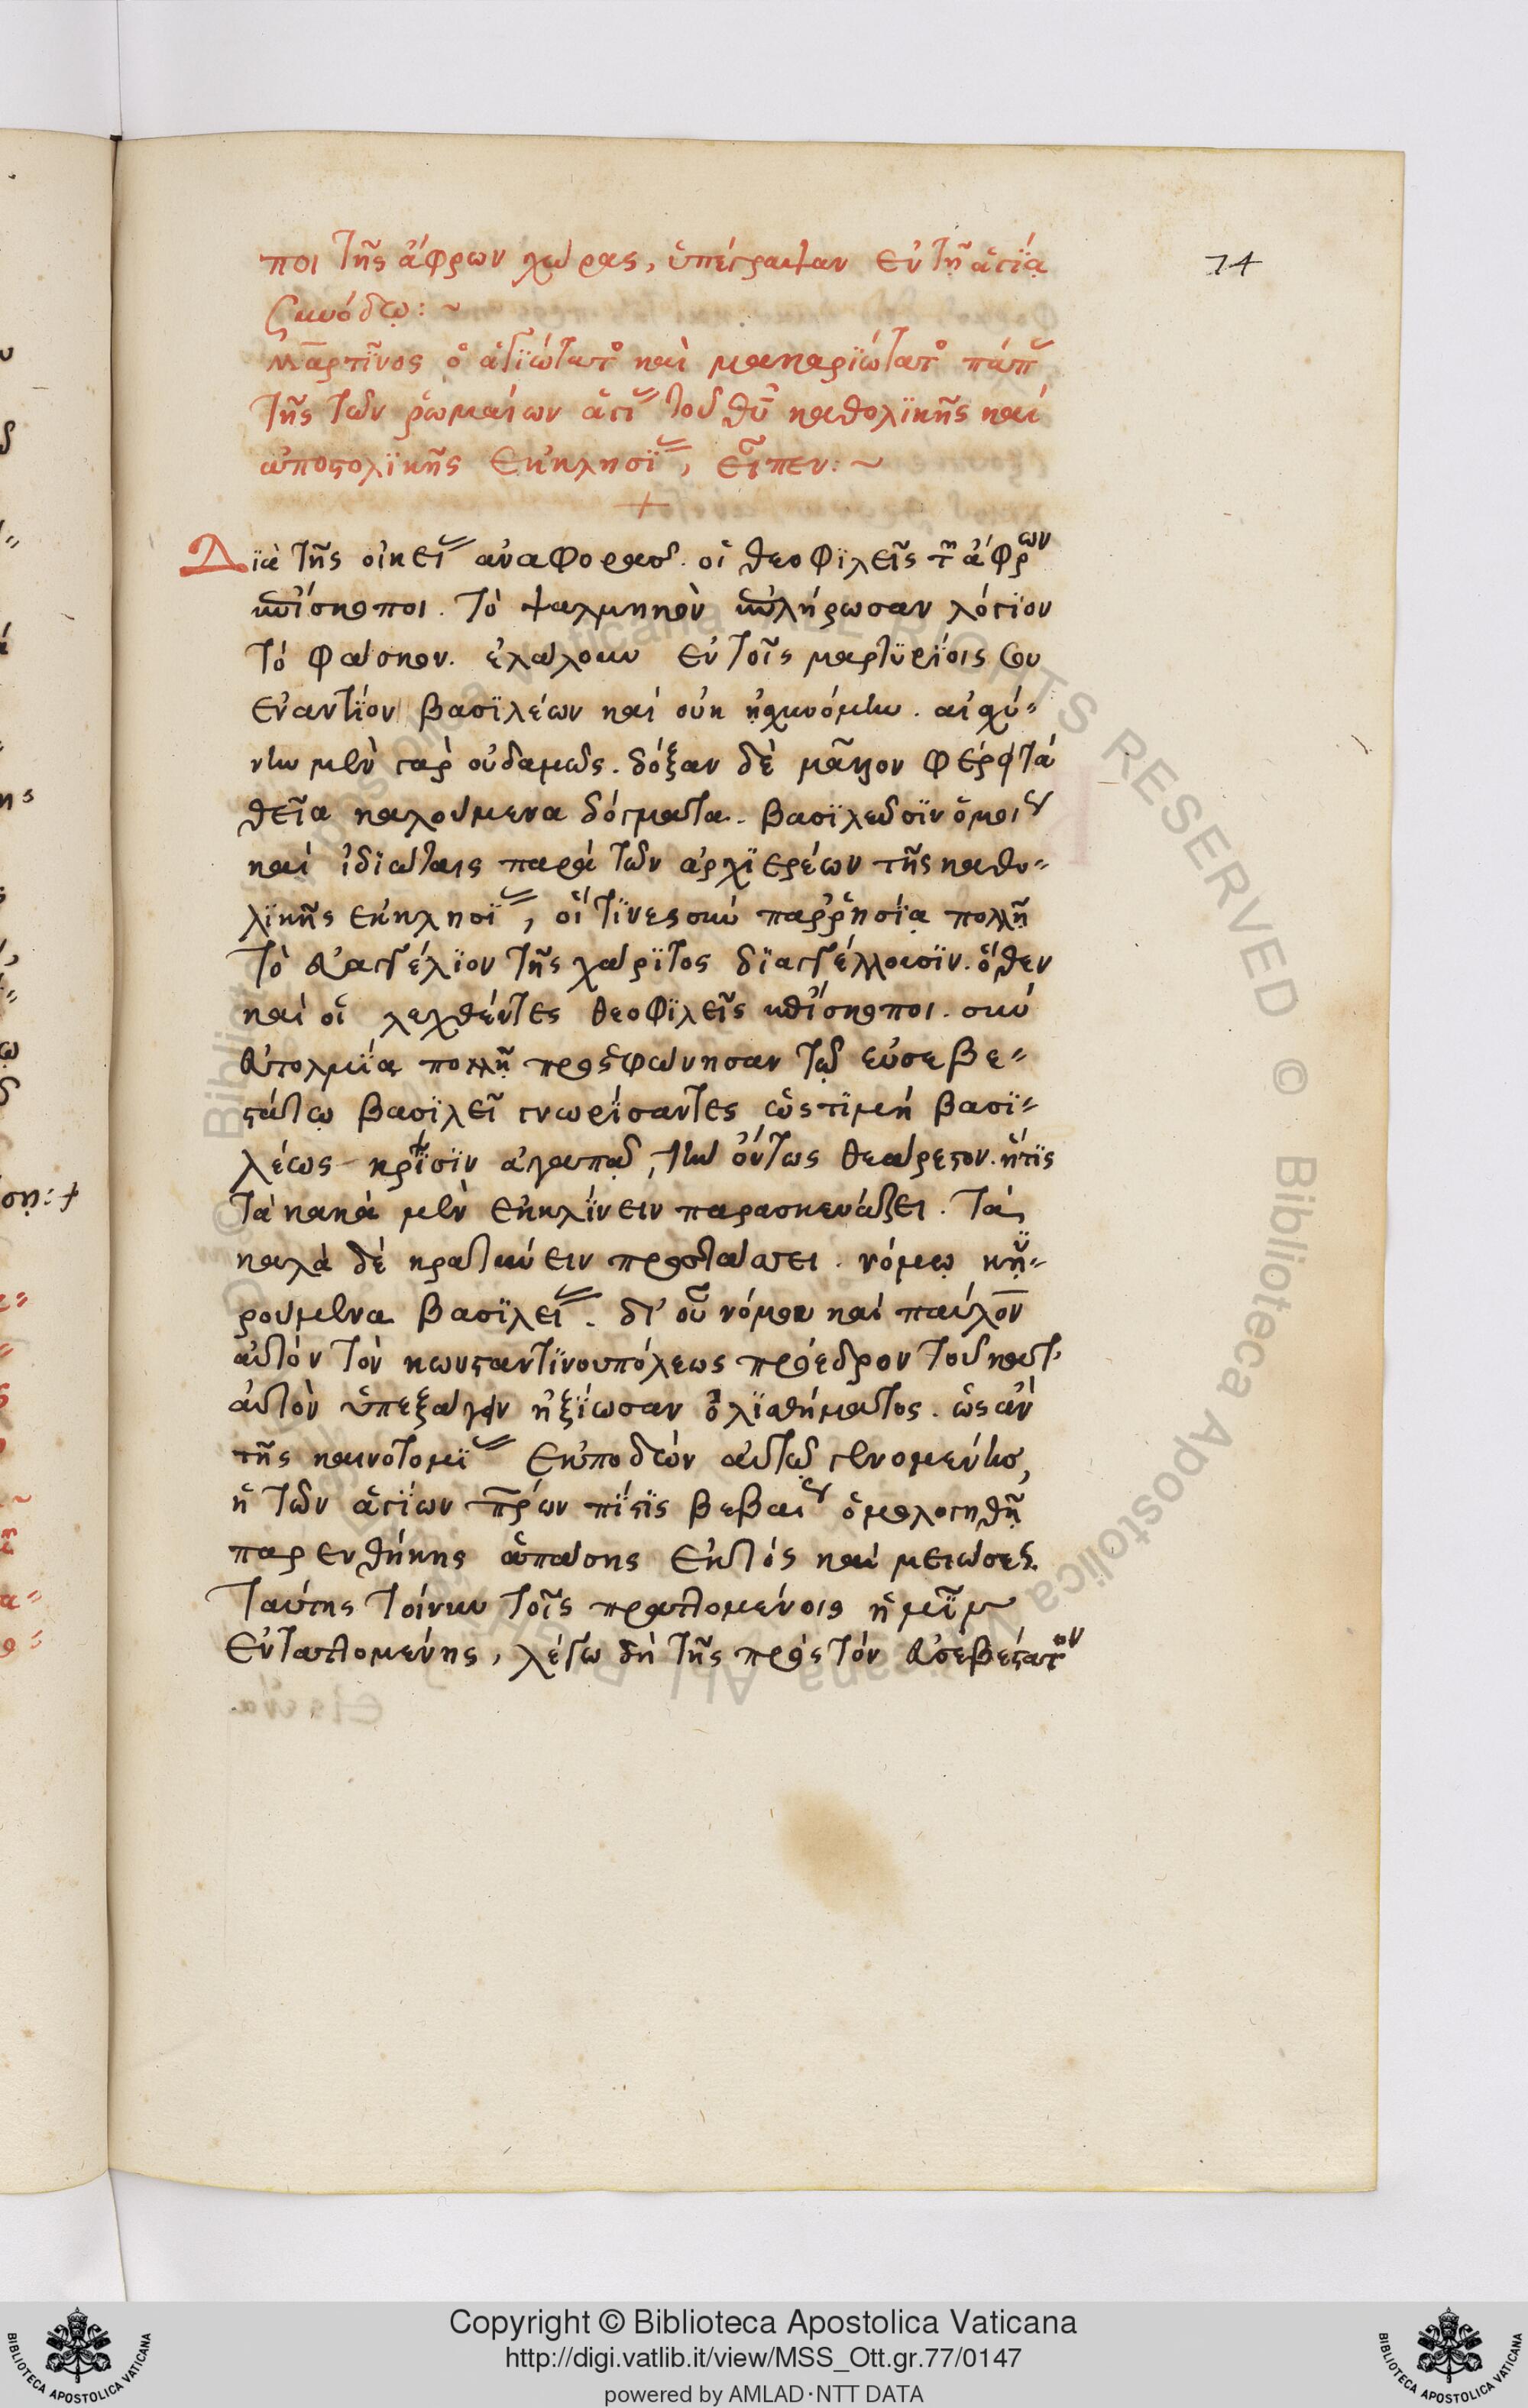 ποι τῆς ἄφρων χώρας, ὑπέγραψαν ἐν τῇ ἁγίᾳ
συνόδῳ: ~
μαρτῖνος ὁ ἁγιώτατος καὶ μακαριώτατος πάπας
τῆς τῶν ῥωμαίων ἁγίας τοῦ θῦ καθολικῆς καὶ
ἀποστολικῆς ἐκκλησίας, εἶπεν: ~
+
Διὰ τῆς οἰκείας ἀναφορᾶς. οἱ θεοφιλεῖς τῆς ἄφρων
ἐπίσκοποι. τὸ ψαλμικὸν ἐπλήρωσαν λόγιον
τὸ φάσκον. ἐλάλουν ἐν τοῖς μαρτυρίοις σου
ἐναντίον βασιλέων καὶ οὐκ ᾐσχυνόμην. αἰσχύ-
νην μὲν γὰρ οὐδαμῶς. δόξαν δὲ μᾶλλον φέρει τὰ
θεῖα καλούμενα δόγματα. βασιλεῦσιν ὁμοίως
καὶ ἰδιώταις παρὰ τῶν ἀρχιερέων τῆς καθο-
λικῆς ἐκκλησίας, οἵτινες σὺν παρρησίᾳ πολλῇ
τὸ εὐαγγέλιον τῆς χάριτος διαγγέλλουσιν. ὅθεν
καὶ οἱ λεχθέντες θεοφιλεῖς ἐπίσκοποι. σὺν
εὐτολμίᾳ πολλῇ προσφώνησαν τῷ εὐσεβε-
στάτῳ βασιλεῖ γνωρίσαντες ὡς τιμὴ βασι-
λέως κρίσιν ἀγαπᾷ, τὴν ὄντως θεάρεστον. ἥτις
τὰ κακὰ μὲν ἐκκλίνειν παρασκευάζει. τὰ
καλὰ δὲ κρατύνειν προστάσσει. νόμῳ κη-
ρούμενα βασιλείας. δι' οὗ νόμου καὶ παῦλον
αὐτὸν τὸν κωνσταντινουπόλεως πρόεδρον τοῦ κατ'
αὐτὸν ὑπεξάγειν ἠξίωσαν ὀλισθήματος. ὡς ἂν
τῆς καινοτομίας ἐκποδὼν αὐτῷ γενομένης,
ἡ τῶν ἁγίων πρων πίστις βεβαίως ὁμολογηθῇ
παρενθήκης ἁπάσης ἐκτὸς καὶ μειώσεως.
ταύτης τοίνυν τοῖς πραττομένοις ἡμῖν
ἐνταττομένης, λέγω δὴ τῆς πρὸς τὸν εὐσεβέστατον
74
Copyright © Biblioteca Apostolica Vaticana
http://digi.vatlib.it/view/MSS_Ott.gr.77/0147
powered by AMLAD·NTT DATA